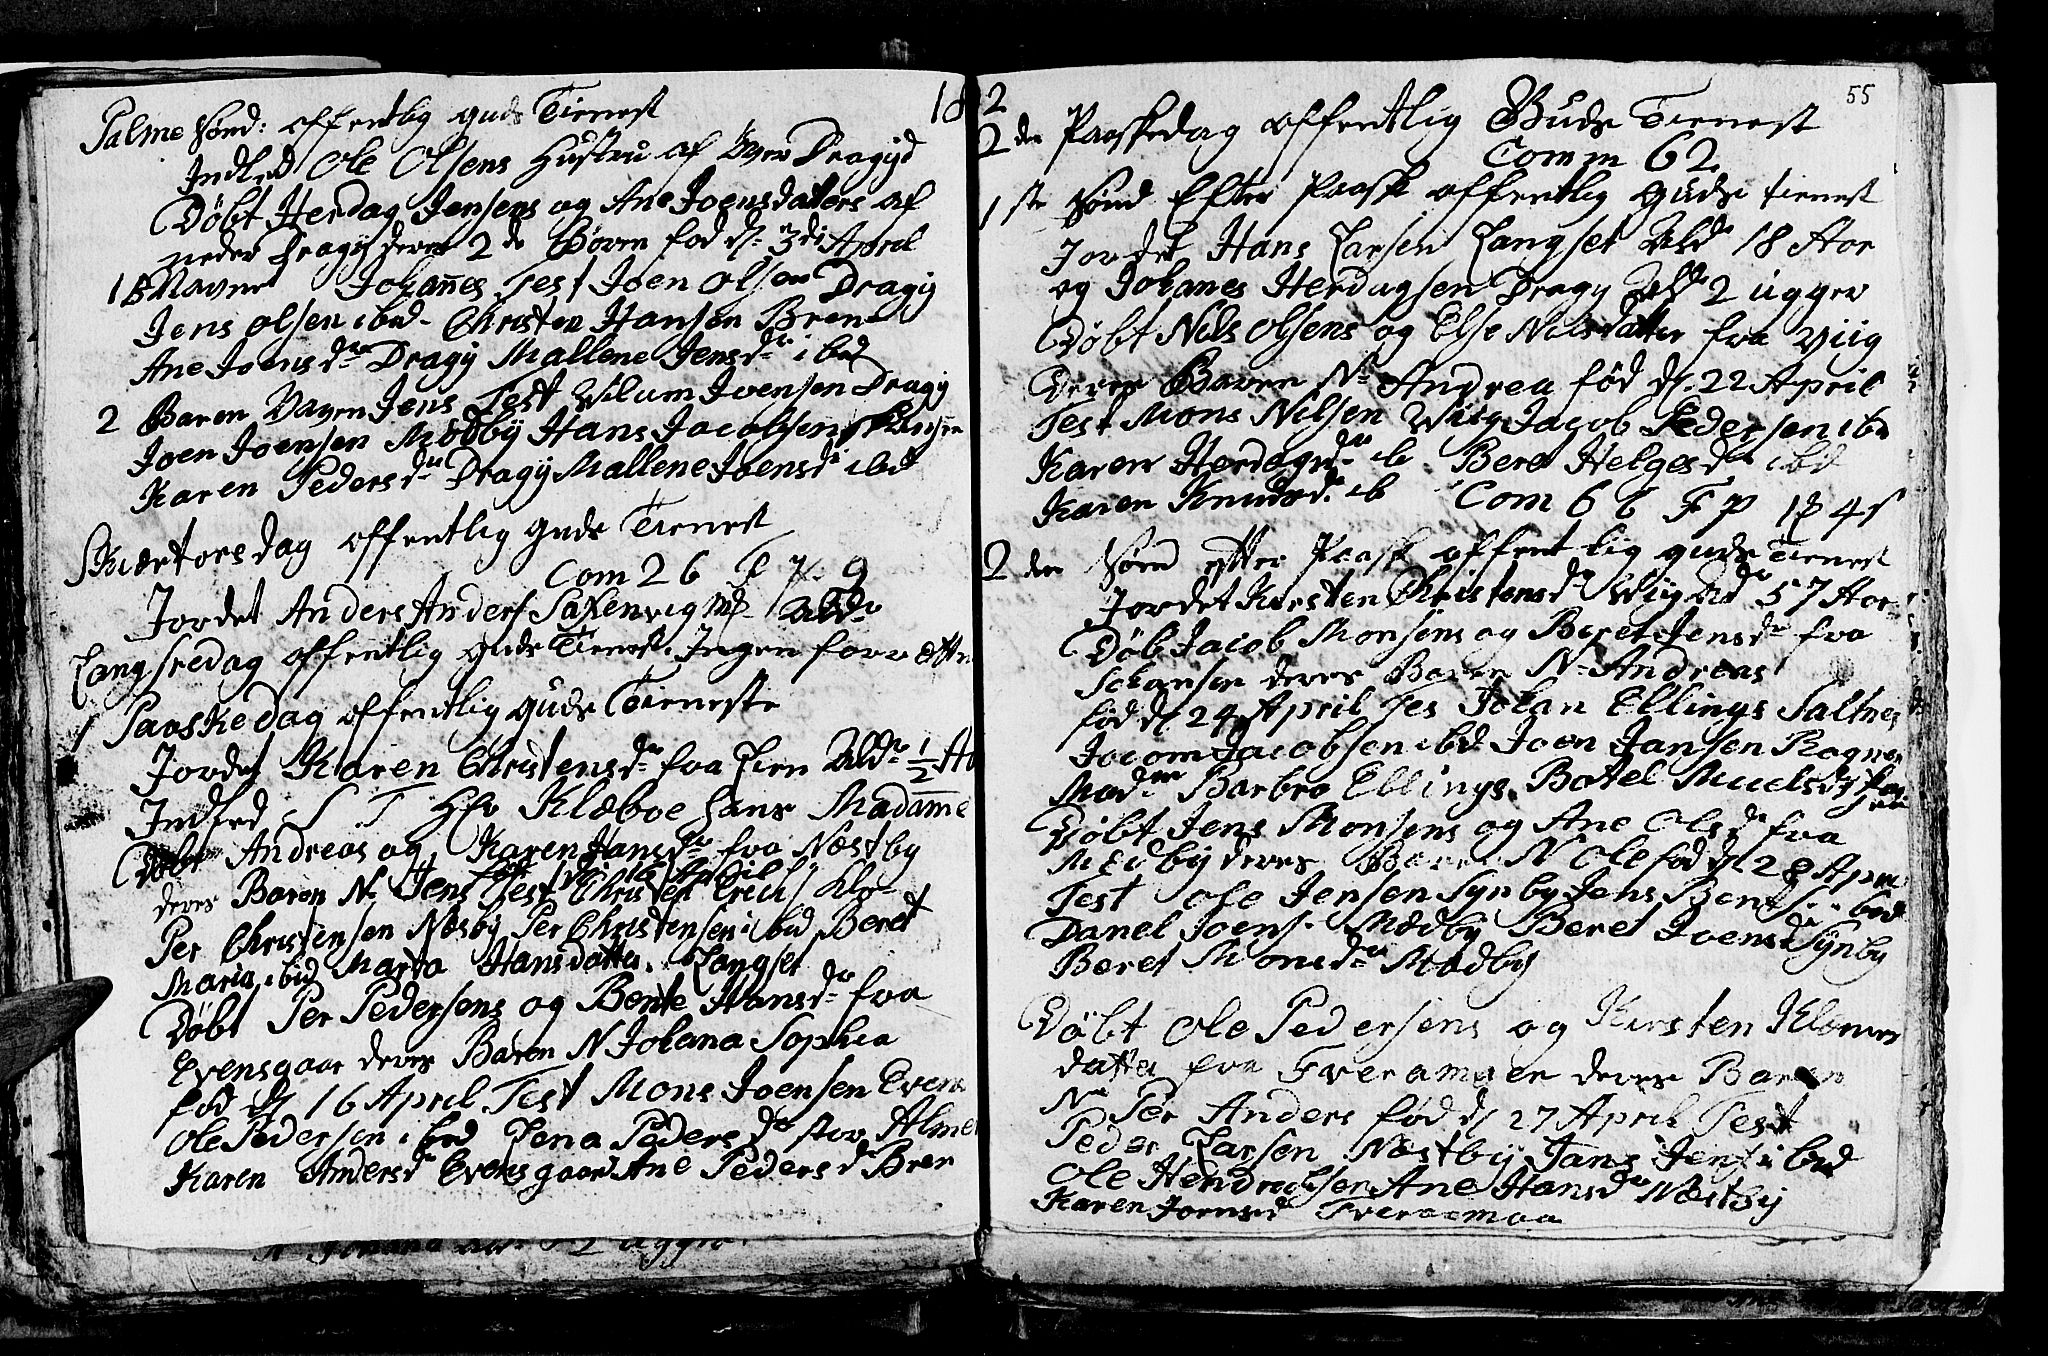 18
Palme Sönd: offentlig guds Tienest
Indled Ole Olsens Hustru af Dragyd
Döbt Herdag Jensens og Ane Joensdatters af
neder Dragy deres 2de Bören fød d: 3di April
1 B Navnet Johannes Test Joen Olsen Dragy
Jens Olsen ibd Christen Hansen Bren
Ane Joensdr Dragy Mallene Jensdr ibd
2 Baren Navn Jens Test Joensen Dragy
Joen Joensen Modby Hans Jacobsen
Karen Pedersdr Dragy Mallene Joensdr ibd
Skiærtorsdag offentlig guds Tienest
Com 26
Jordet Anders Anders Saxenvig
Langfredag offentlig guds Tienest. Ingen forrett
1 Paaskedag offentlig guds Tieneste
Jordet Karen Christensdr fra Lien Aldr 1/2
Indled S T Hr Klæboe hans Madamme
Döbt Andreas og Karen Hansdr fra Næstby
fød d 16 April
deres Baren N Jens Test Christen
Per Christensen Næsby Per Christensen ibd Beret
Maria ibid Marta Hansdatter Langset
Döbt Per Pedersens og Bente Hansdr fra
Evensgaar deres Baren N Johana Sophia
fød d 16 April Test Mons Joensen Evens
Ole Pedersen ibd Lena Pedersdr stor Alme
Karen Andersdr Evensgaard Ane Pedersd Bren
2
55
2den Paaskedag offentlig Guds Tienest
Comm 62
1ste Sönd Efter Paaske offentlig guds tienest
Jordet Hans Larsen Langset Aldr 18 Aar
og Johanes Herdagsen Dragy Aldr 2 ugger
Döbt Nils Olsens og Else Nilsdatter fra Viig
deres Baren N Andrea fød d. 22 April
Test Mons Nilsen Wiig Jacob Pedersen ibd
Karen Herdagsdr ib Beret Helgesdr ibd
Karen Knudsdr ib Com 66 F P
2den Sönd efter Paaske offentlig guds Tienest
Jordet Kirsten Christensdr Wiig Aldr 57 Aar
Döb Jacob Monsens og Beret Jensdr fra
deres Baren N Andreas
fød d 24 April Tes Johan Ellings Saltnes
Jacobsen ibd Joen Jansen Rognen
Barbro Ellings. Botel
Döbt Jens Monsens og Ane Olsdr fra
Medby deres Baren N Ole fød d 28 April
Test Ole Jensen Synby Jens ibid
Danel Joens. Mædby Beret Joensdr Synby
Beret Monsdr Modby
Döbt Ole Pedersens og Kirsten
datter fra deres Baren
N Per Anders fød d 27 April Test
Peder Larsen Næstby Jans Jens ibd
Ole Hendrichsen Ane Hansdr Næstby
Karen Joensd